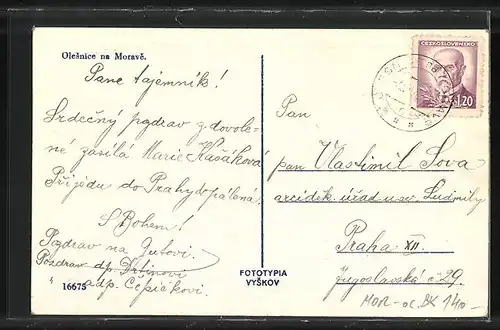 Olešnice na Moravě.
Pane tajemník!
Srdečný pozdrav z dovole-
né zasílá Marie Kašáková
Přijedu do Prahy
S Bohem!
Pozdrav na
Pozdrav dp.
" adp. Čepičkovi.
16675
FOTOTYPIA
VYŠKOV
ČESKOSLOVENSKO
1.20
Pan
pan Vlastimil Sova
arciděk. úřad u sv. Ludmily
Praha XII.
Jugoslávská č 29.
MOR-oc.BK 140-